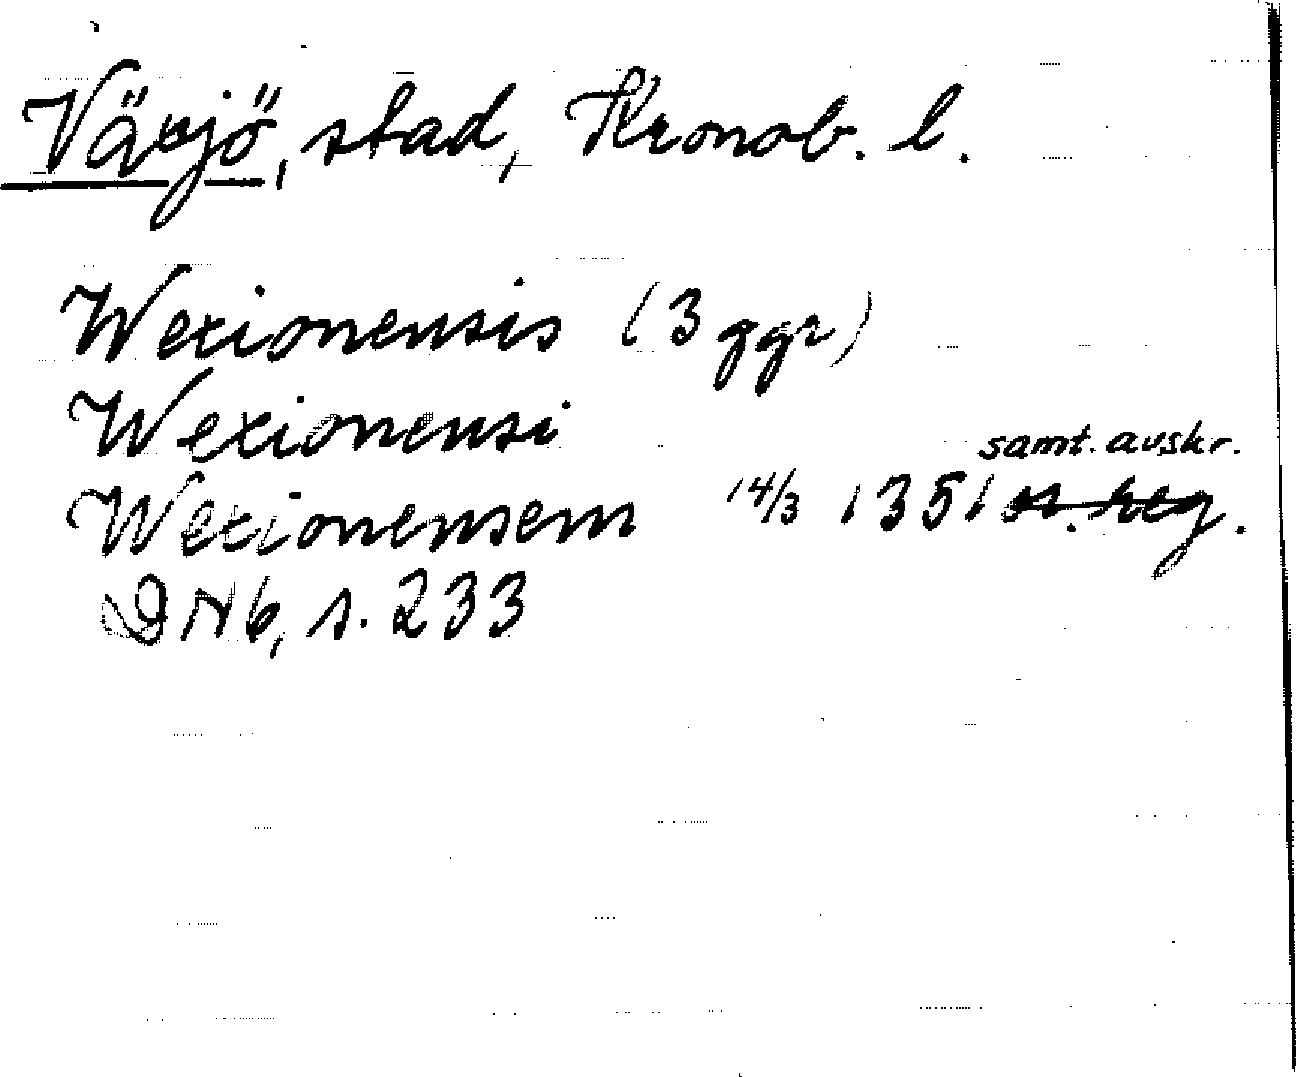 Växjö, stad, Kronob. l.
Wexionensis (3 ggr)
Wexionensi
samt. avskr.
Wexionensem 14/3 1351 or. reg.
DN 6, s. 233